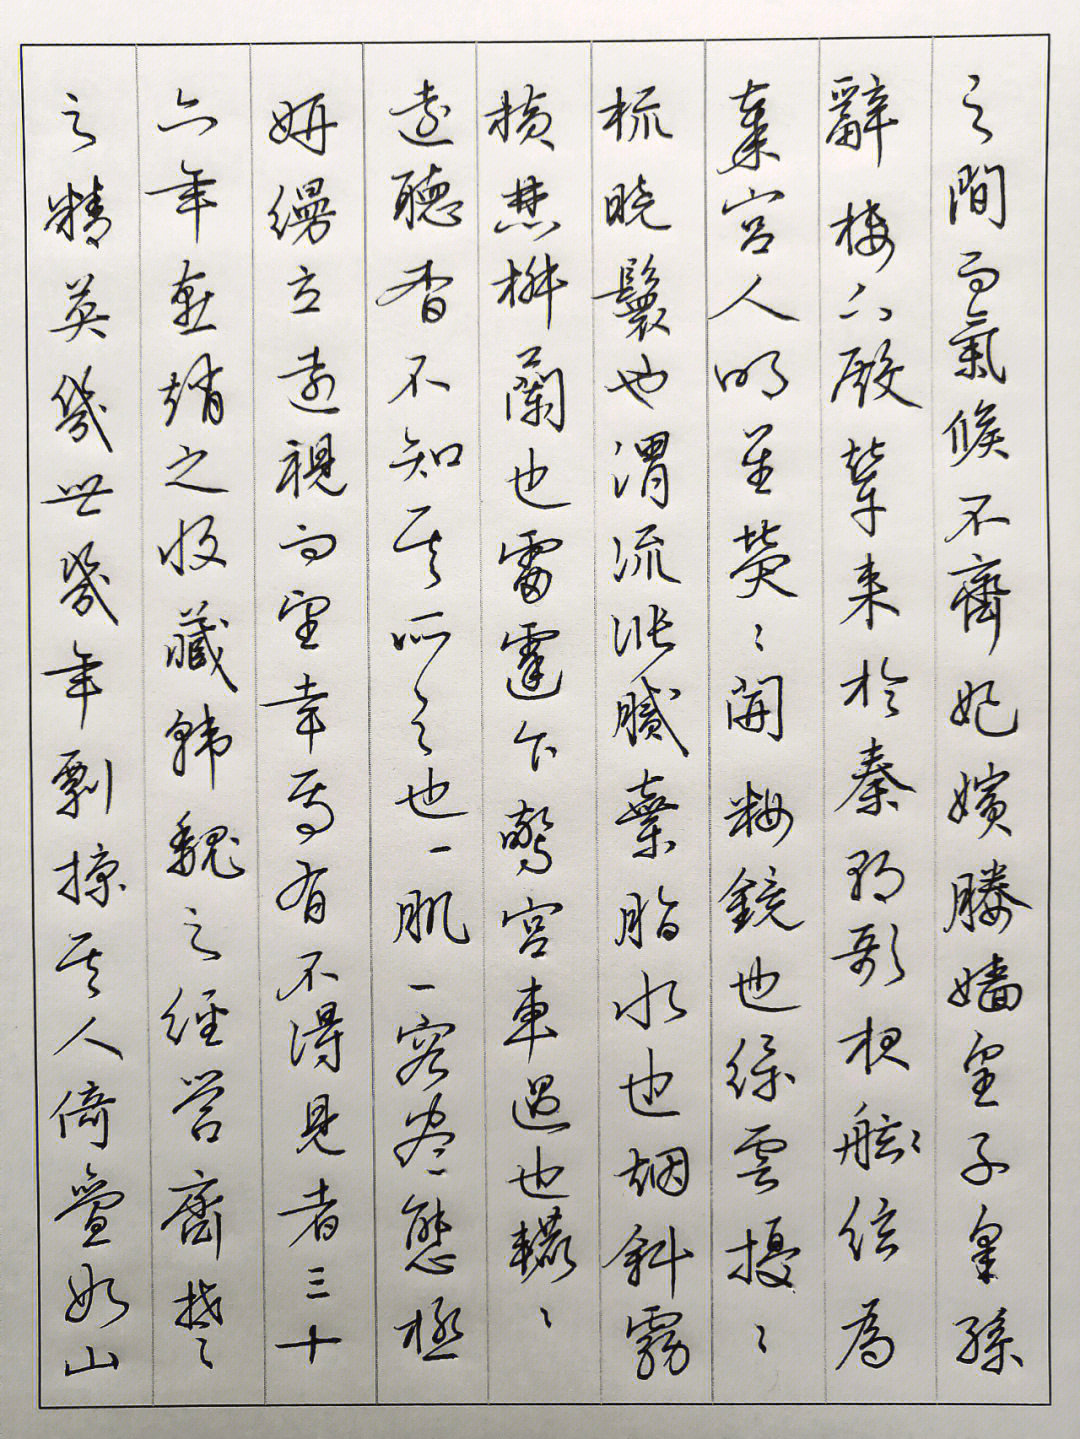 之間而氣候不齊妃嬪媵嬙皇子皇孫
辭樓下殿輦来於秦朝歌夜舷絃為
秦宮人明星熒〻開粧鏡也綠雲擾〻
梳曉鬟也渭流漲膩棄脂水也烟斜霧
橫焚椒蘭也雷霆乍驚宮車過也轆〻
遠聽杳不知其所之也一肌一容盡態極
妍縵立遠視而望幸焉有不得見者三十
六年燕趙之收藏韓魏之經營齊楚
之精英幾世幾年剽掠其人倚疊如山